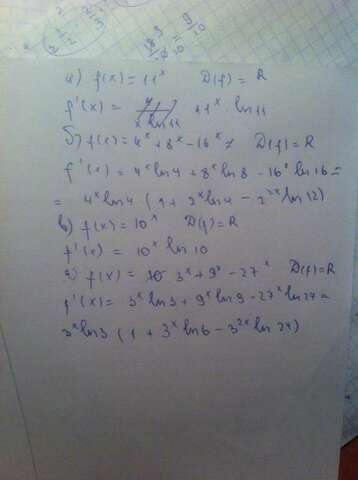 а) f(x) = 11^x D(f) = R
f'(x) = 11^x · ln 11
б) f(x) = 4^x + 8^x - 16^x D(f) = R
f'(x) = 4^x ln 4 + 8^x ln 8 - 16^x ln 16 =
= 4^x ln 4 (1 + 2^x ln 4 - 2^2x ln 12)
в) f(x) = 10^x D(f) = R
f'(x) = 10^x ln 10
г) f(x) = 3^x + 9^x - 27^x D(f) = R
f'(x) = 3^x ln 3 + 9^x ln 9 - 27^x ln 27 =
3^x ln 3 (1 + 3^x ln 6 - 3^2x ln 24)